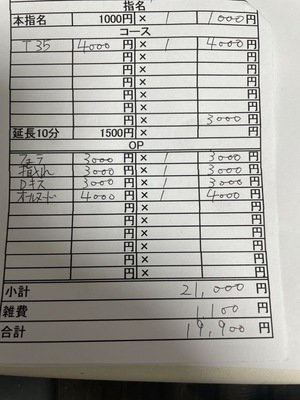 指名
本指名 1000円 × 1 1000円
コース
T35 4000円 × 1 4000円
円 × 円
円 × 円
円 × 円
円 × 円
円 × 3000円
延長10分 1500円 × 円
OP
フェラ 3000円 × 1 3000円
指入れ 3000円 × 1 3000円
Dキス 3000円 × 1 3000円
オールヌード 4000円 × 1 4000円
円 × 円
円 × 円
円 × 円
円 × 円
円 × 円
円 × 円
小計 21,000円
雑費 1,100円
合計 19,900円